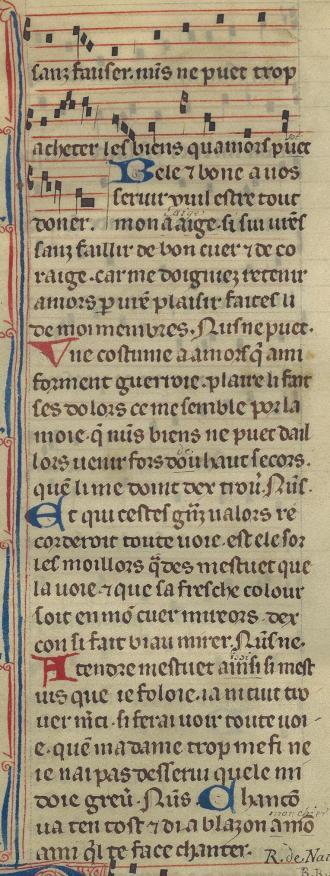 sanz fauser. nus ne puet trop
acheter les biens quamors puet
Bele ⁊ bone a uos
seruir vuil estre tout
doner. mon aaige. si sui urēs
sanz faillir de bon cuer ⁊ de co
raige. car me doigniez retenir
amors p urē plaisir faites li
de moi membres. Nus ne puet.
Vne costume a amors q̄ ami
forment guerroie. plaire li fait
ses dolors ce me semble por la
moie. q̄ nus biens ne puet dail
lors uenir fors dou haut secors.
quē li me doint dex trou. Nus.
Et qui cestes gnz ualors re
corderoit toute uoie. est ele sor
les moillors q̄ des mestuet que
la uoie. ⁊ que sa fresche colour
soit en mō cuer mireors. dex
con si fait biau mirer. Nus ne.
Atendre mestuet ainsi si mest
uis que ie foloie. ia ni cuit tro
uer mci. si ferai uoir toute uoi
e. quē ma dame trop me fi ne
ie nai pas desserui quele mi
doie greu. Nus Chancō
ua ten tost ⁊ di a blazon amō
ami ql te face chanter.
R. de Nai